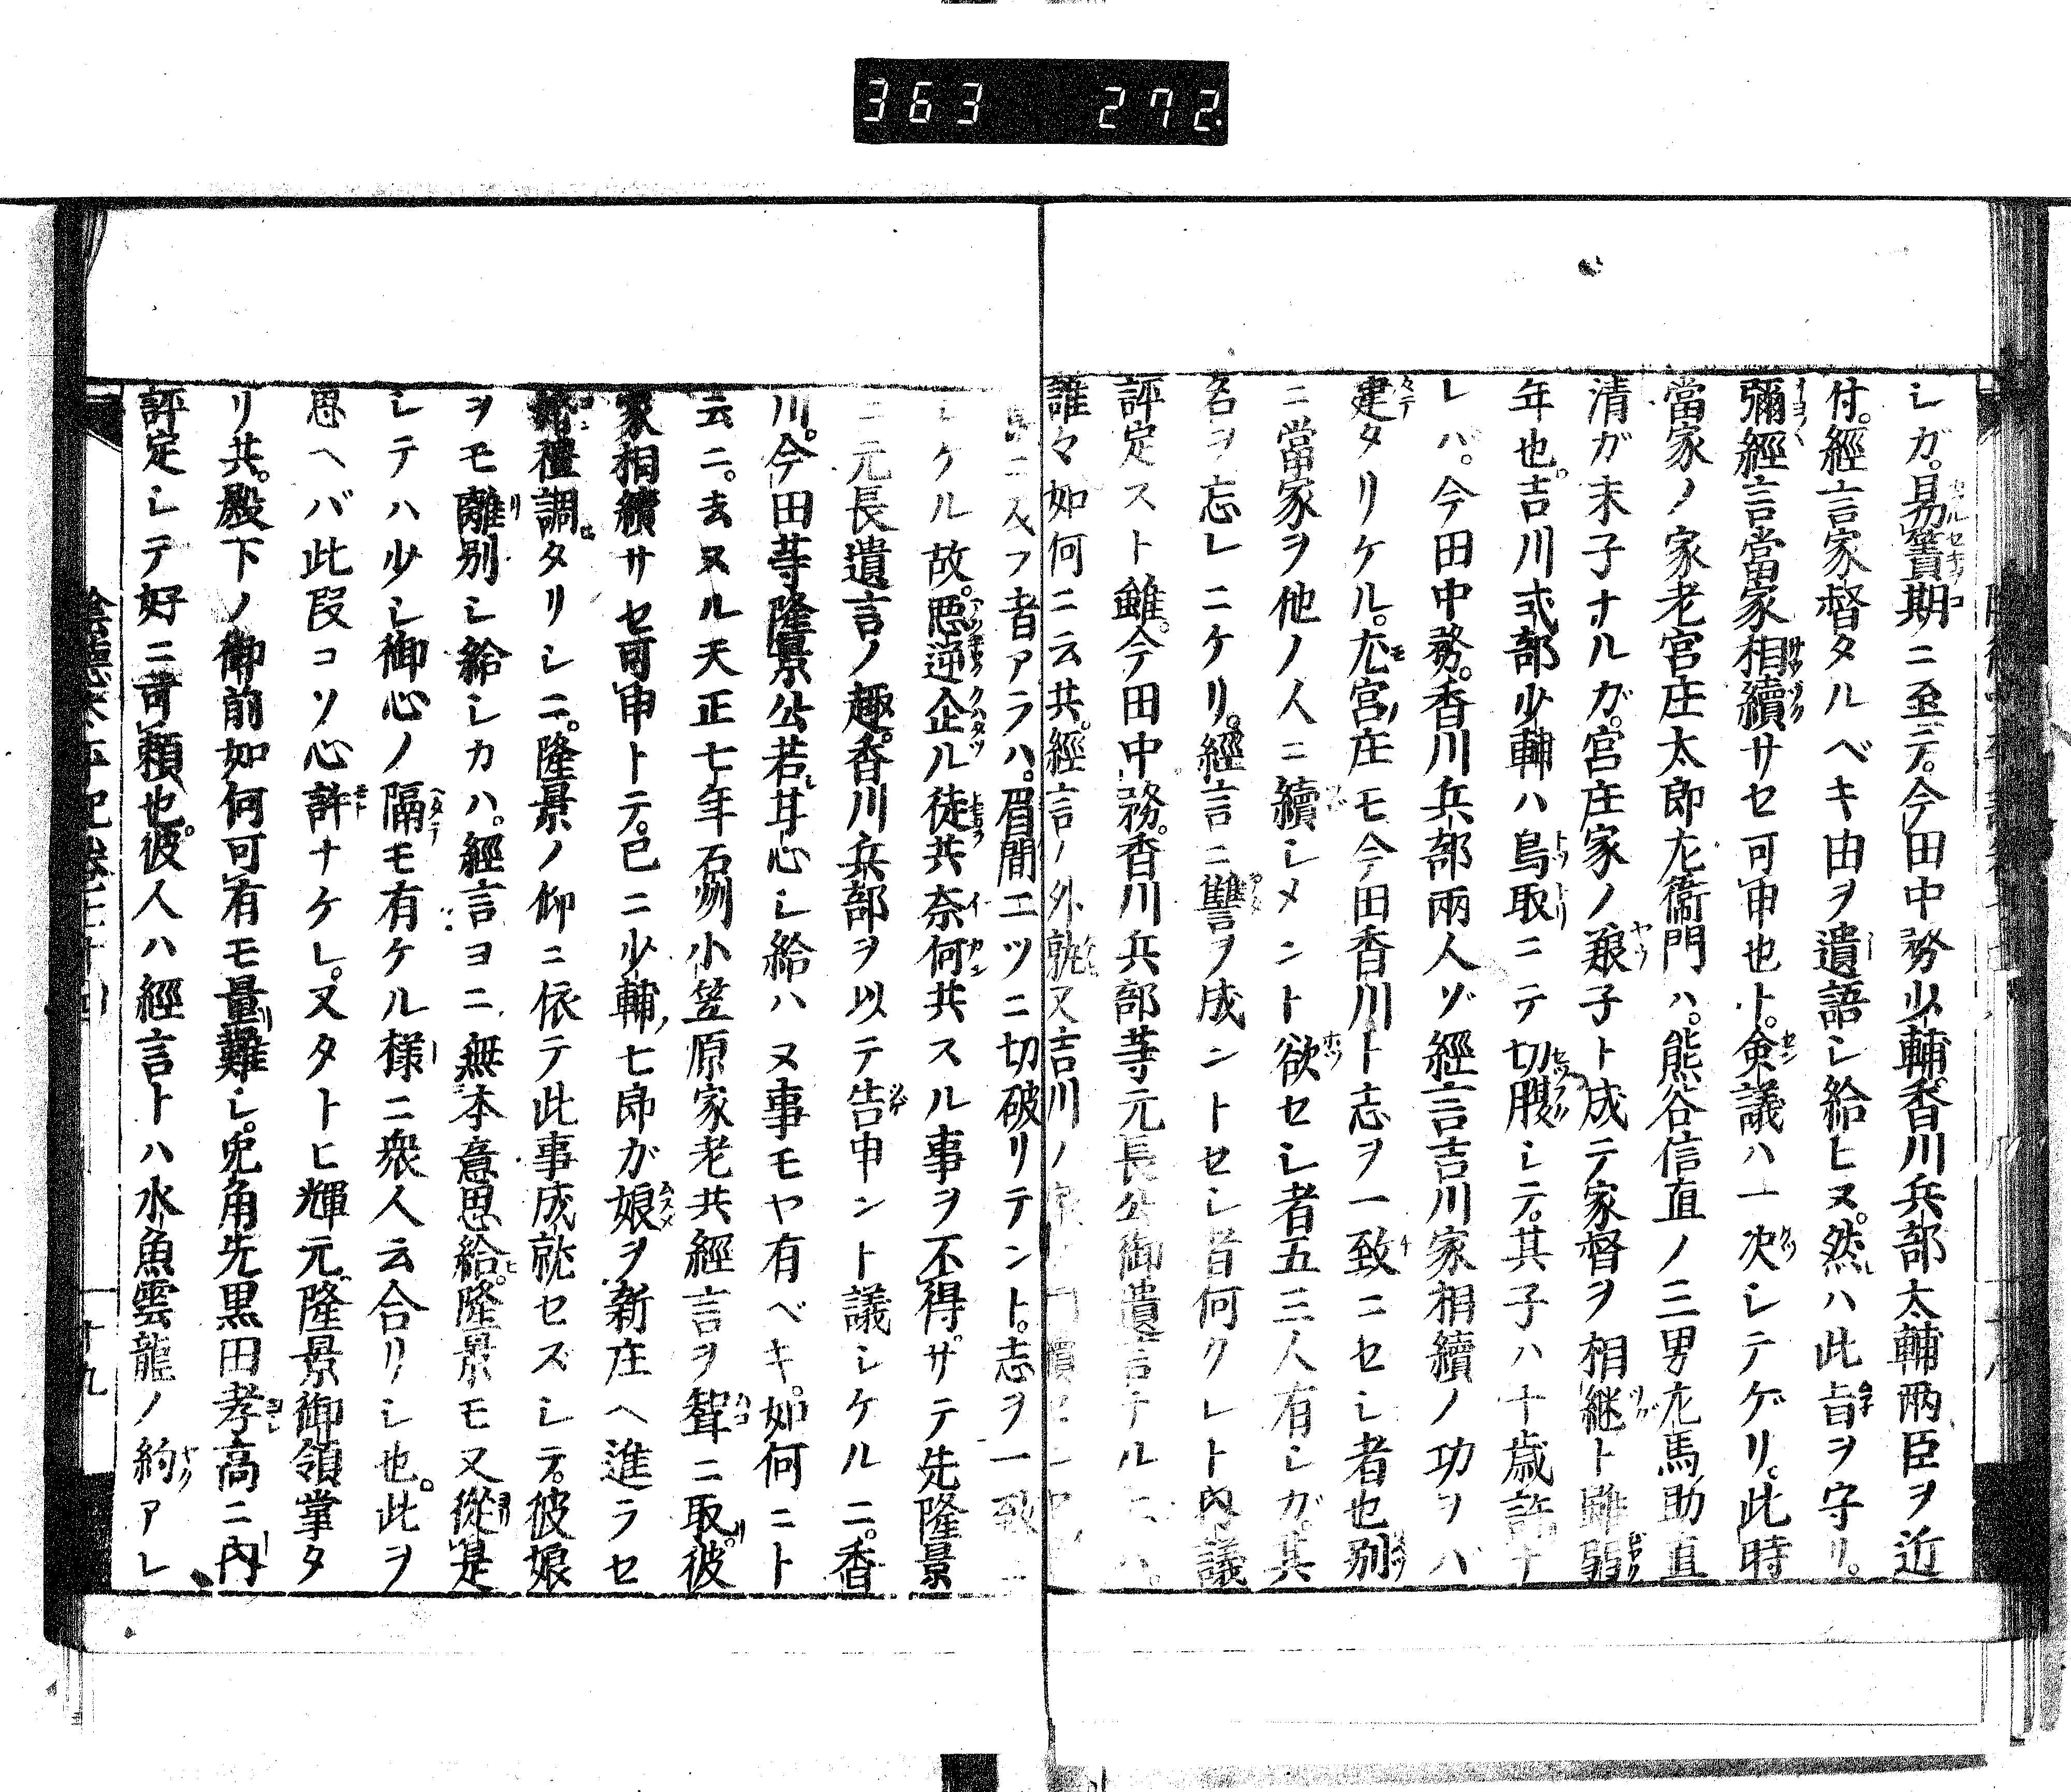 363 272
シガ。易簀期ニ至テ。今田中務少輔。香川兵部太輔兩臣ヲ近
付。經言家督タルベキ由ヲ遺語シ給ヒヌ。然ハ此旨ヲ守リ。
彌經言當家相續サセ可申也ト。僉議ハ一決シテゲリ。此時
當家ノ家老宮庄太郎左衞門ハ。熊谷信直ノ三男左馬助直
清ガ末子ナルガ。宮庄家ノ養子ト成テ家督ヲ相継ト雖弱
年也。吉川式部少輔ハ鳥取ニテ切腹シテ。其子ハ十歳許ナ
レハ。今田中務。香川兵部兩人ゾ經言吉川家相續ノ功ヲバ
建タリケル。尤宮庄モ今田香川ト志ヲ一致ニセシ者也別
ニ當家ヲ他ノ人ニ續シメント欲セシ者五三人有シガ。其
名ヲ忘レニケリ。經言ニ讐ヲ成ントセシ者何クレト内議
評定スト雖。今田中務。香川兵部等元長公御遺言ナルニハ。
誰々如何ニ云共。經言ノ外就又吉川ノ
ニ入フ者アラハ。眉間エツニ切破リテント。志ヲ一致ニ
シケル故。悪逆企ル徒共奈何共スル事ヲ不得サテ先隆景
ニ元長遺言ノ趣。香川兵部ヲ以テ告申ント議シケルニ。香
川。今田等隆景公若甘心シ給ハヌ事モヤ有ベキ。如何ニト
云ニ。去ヌル天正七年石州小笠原家老共經言ヲ聟ニ取。彼
家相續サセ可申トテ。已ニ少輔七郎ガ娘ヲ新庄ヘ進ラセ
婚禮調タリシニ。隆景ノ仰ニ依テ此事成就セズシテ。彼娘
ヲモ離別シ給シカハ。經言ヨニ無本意思給。隆景モ又從是
シテハ少シ御心ノ隔モ有ケル様ニ衆人云合リシ也。此ヲ
思ヘバ此段コソ心許ナケレ。又タトヒ輝元。隆景御領掌タ
リ共。殿下ノ御前如何可有モ量難シ。兎角先黒田孝高ニ内
評定シテ好ニ可賴也。彼人ハ經言トハ水魚雲龍ノ約アレ
十九